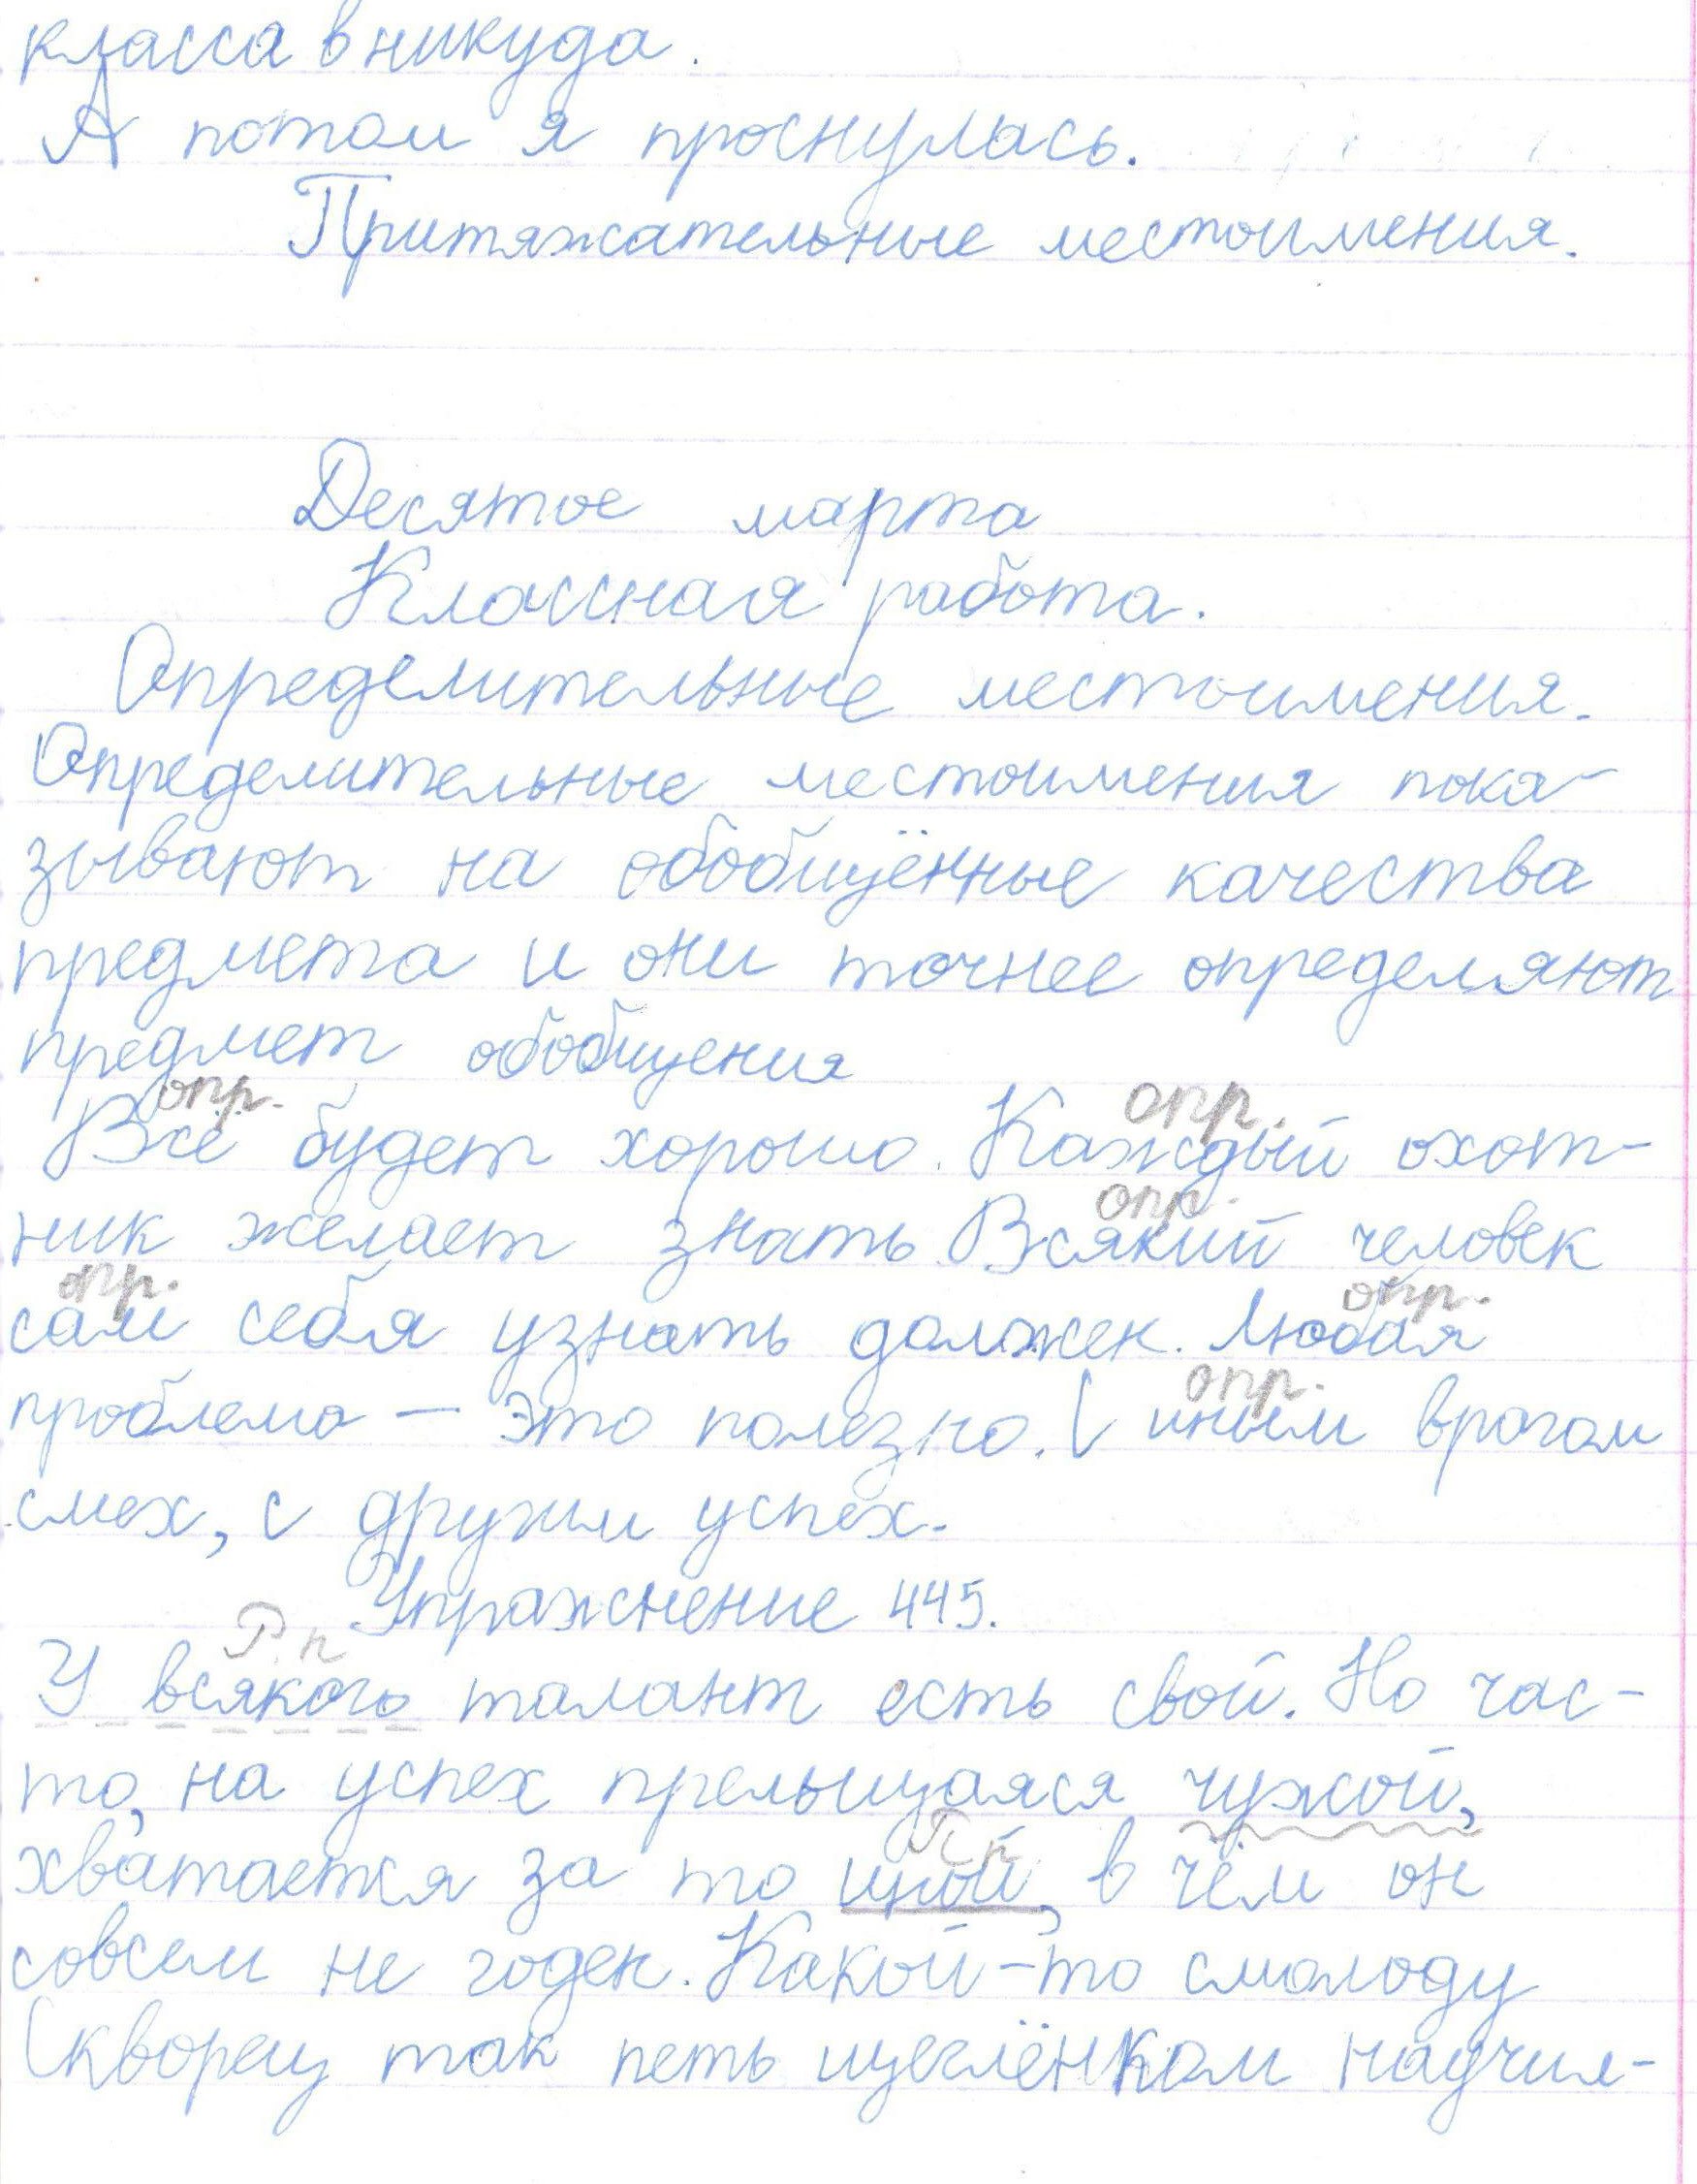 класса в никуда.
А потом я проснулась.
Притяжательные местоимения.
Десятое марта
Классная работа.
Определительные местоимения.
Определительные местоимения пока-
зывают на обобщённые качества
предмета и они точнее определяют
предмет обобщения
опр. опр.
Всё будет хорошо. Каждый охот-
опр.
ник желает знать. Всякий человек
опр. опр.
сам себя узнать должен. Любая
опр.
проблема — это полезно. С иным врагом
смех, с другим успех.
Упражнение 445.
Р.п
У всякого талант есть свой. Но час-
то, на успех прельщаяся чужой,
П п
хватается за то иной, в чём он
совсем не годен. Какой-то смолоду
Скворец так петь щеглёнком научил-